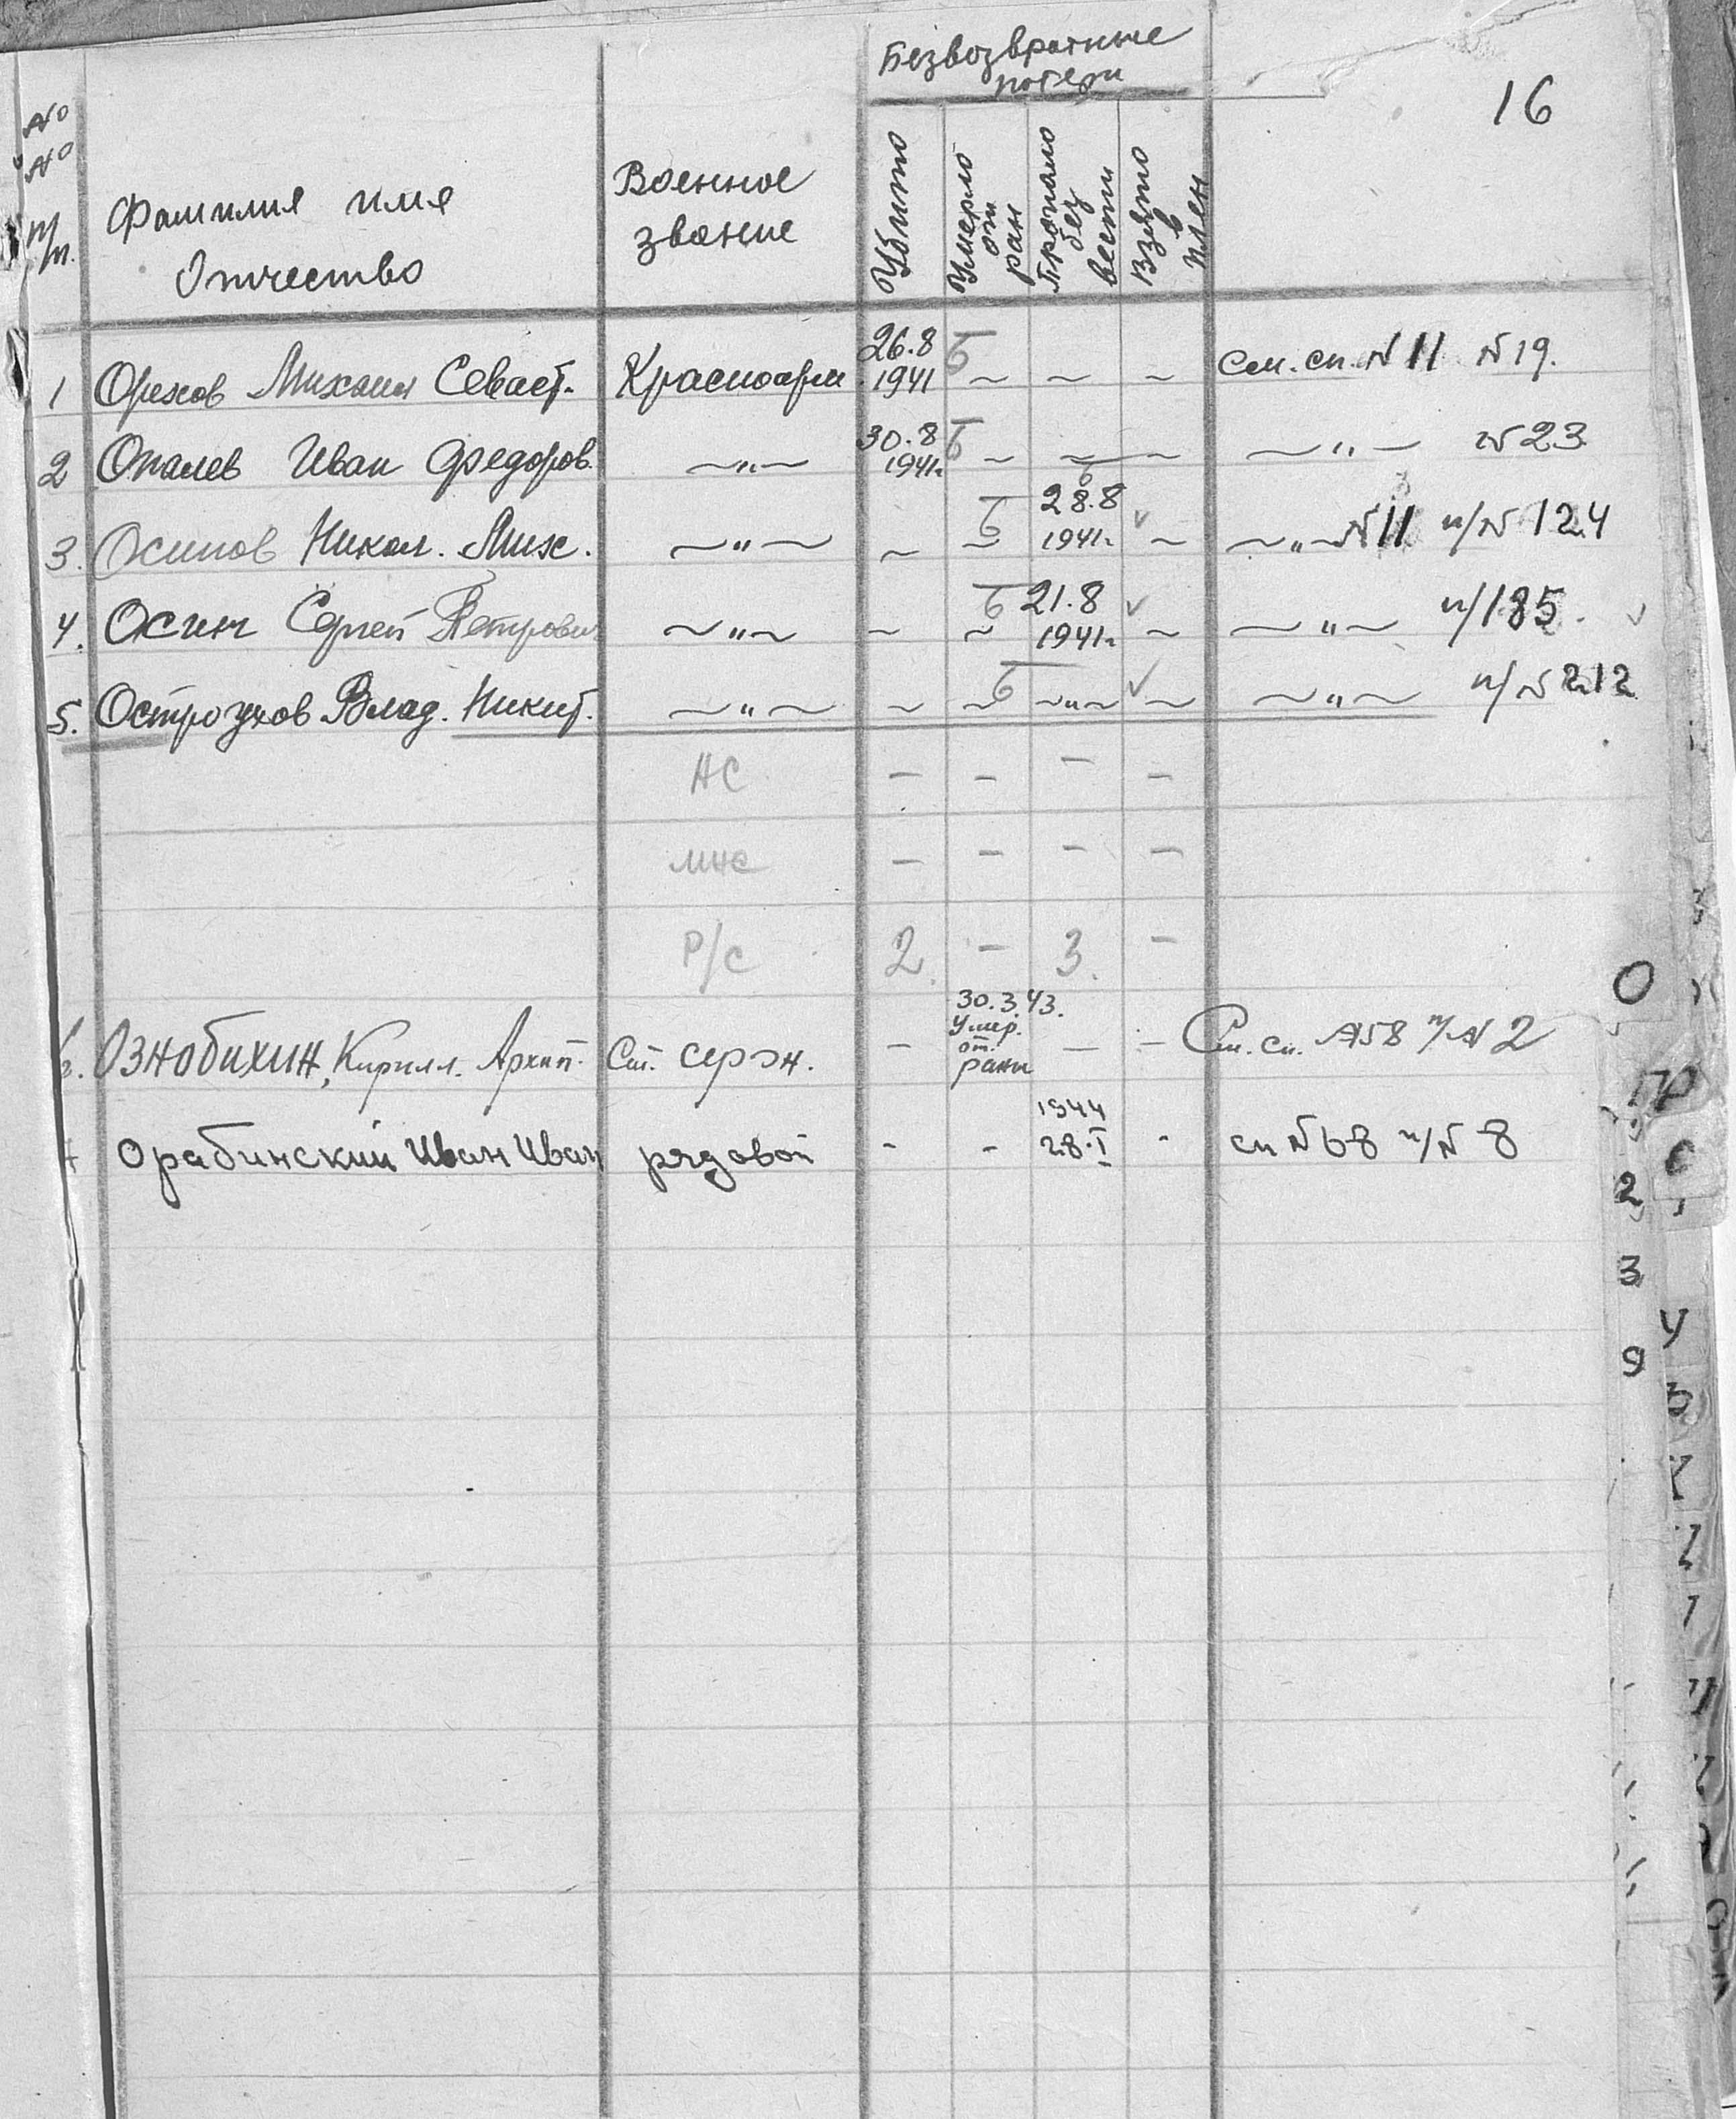 16
Безвозвратные
потери
№ № п/п.
Фамилия имя
Отчество
Военное
звание
Убито
Умерло от ран
Пропало без вести
Взято в плен
1 Орехов Михаил Севаст. Красноарм. 26.8 1941 ~ ~ ~ См. сп. № 11 № 19.
2 Опалев Иван Федоров. ~"~ 30.8 1941г ~ ~ ~ ~"~ № 23
3. Осипов Никол. Мих. ~"~ ~ ~ 28.8 1941г. ~ ~"~ № 11 п/№ 124
4. Осин Сергей Петрович ~"~ ~ ~ 21.8 1941г ~ ~"~ п/185.
5. Остроухов Влад. Никит. ~"~ ~ ~ ~"~ ~ ~"~ п/№ 212
НС – – – –
мнс – – – –
Р/С 2. – 3. –
6. Ознобихин, Кирилл. Архип. Ст. серж. – 30.3.43. Умер. от. раны – – См. сп. №58 п/№ 2
Орабинский Иван Иван рядовой - - 1944 28.I - сп № 68 п/№ 8
О
ПР
С
2
3
У
9